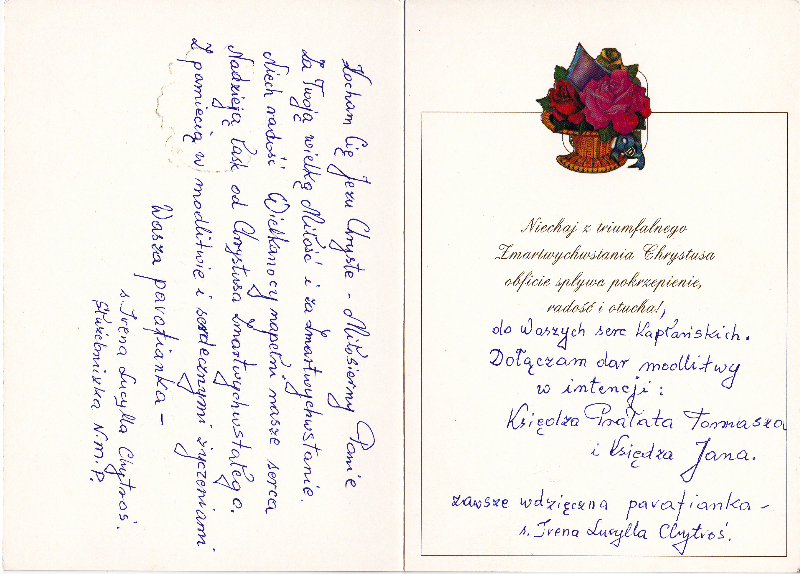 Kocham Cię Jezu Chryste – Miłosierny Panie
Za Twoją wielką Miłość i za Zmartwychwstanie.
Niech radość Wielkanocy napełni nasze serca
Nadzieją łask od Chrystusa Zmartwychwstałego.
Z pamiecią w modlitwie i serdecznymi życzeniami.
Wasza parafianka –
s. Irena Lucylla Chytroś.
Służebniczka N.M.P.
Niechaj z triumfalnego
Zmartwychwstania Chrystusa
obficie spływa pokrzepienie,
radość i otucha!,
do Waszych serc Kapłańskich.
Dołączam dar modlitwy
w intencji:
Księdza Prałata Tomasza
i Księdza Jana.
zawsze wdzięczna parafianka –
s. Irena Lucylla Chytroś.